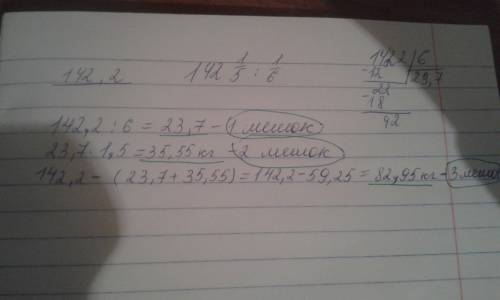 142,2 142 1/5 : 1/6
142,2 | 6
-12 | 23,7
22
-18
42
142,2 : 6 = 23,7 - 1 мешок
23,7 · 1,5 = 35,55 кг - 2 мешок
142,2 - (23,7 + 35,55) = 142,2 - 59,25 = 82,95 кг - 3 меш